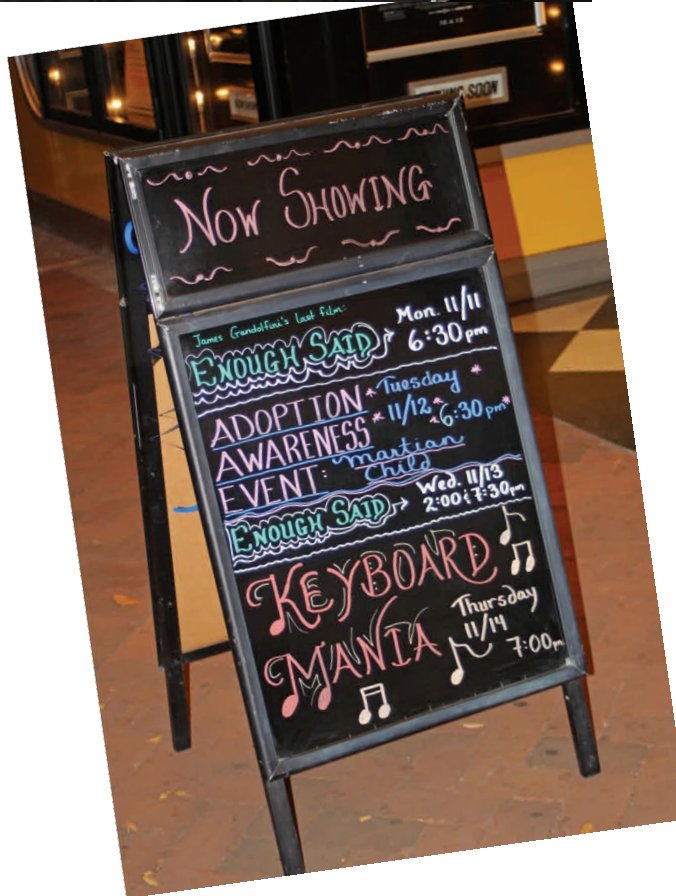 10.4.13
SOON
Now Showing
James Gandolfini's last film:
ENOUGH SAID
Mon. 11/11
6:30pm
ADOPTION
AWARENESS
EVENT:
Tuesday
11/12
6:30pm
Martian
Child
ENOUGH SAID
Wed. 11/13
2:00 & 7:30pm
KEYBOARD
MANIA
Thursday
11/14
7:00pm